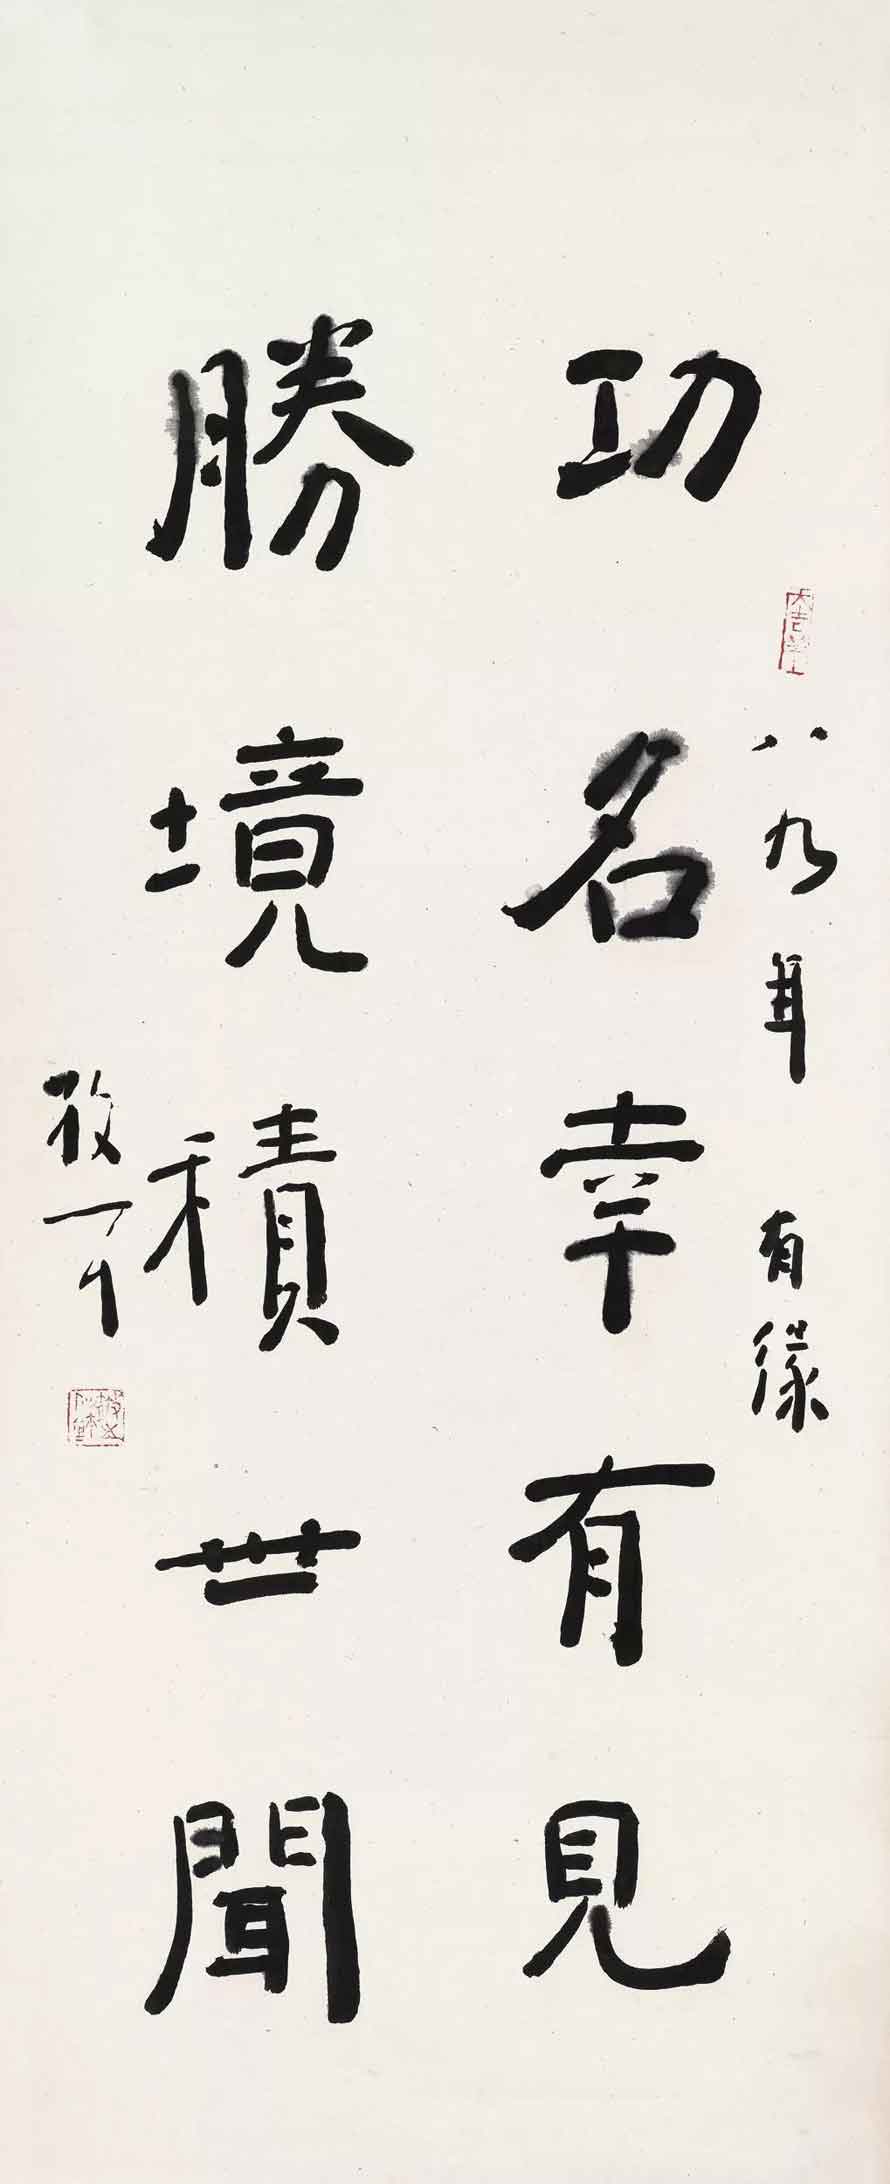 功名幸有見
勝境積世聞
八九年 有緣
大吉羊